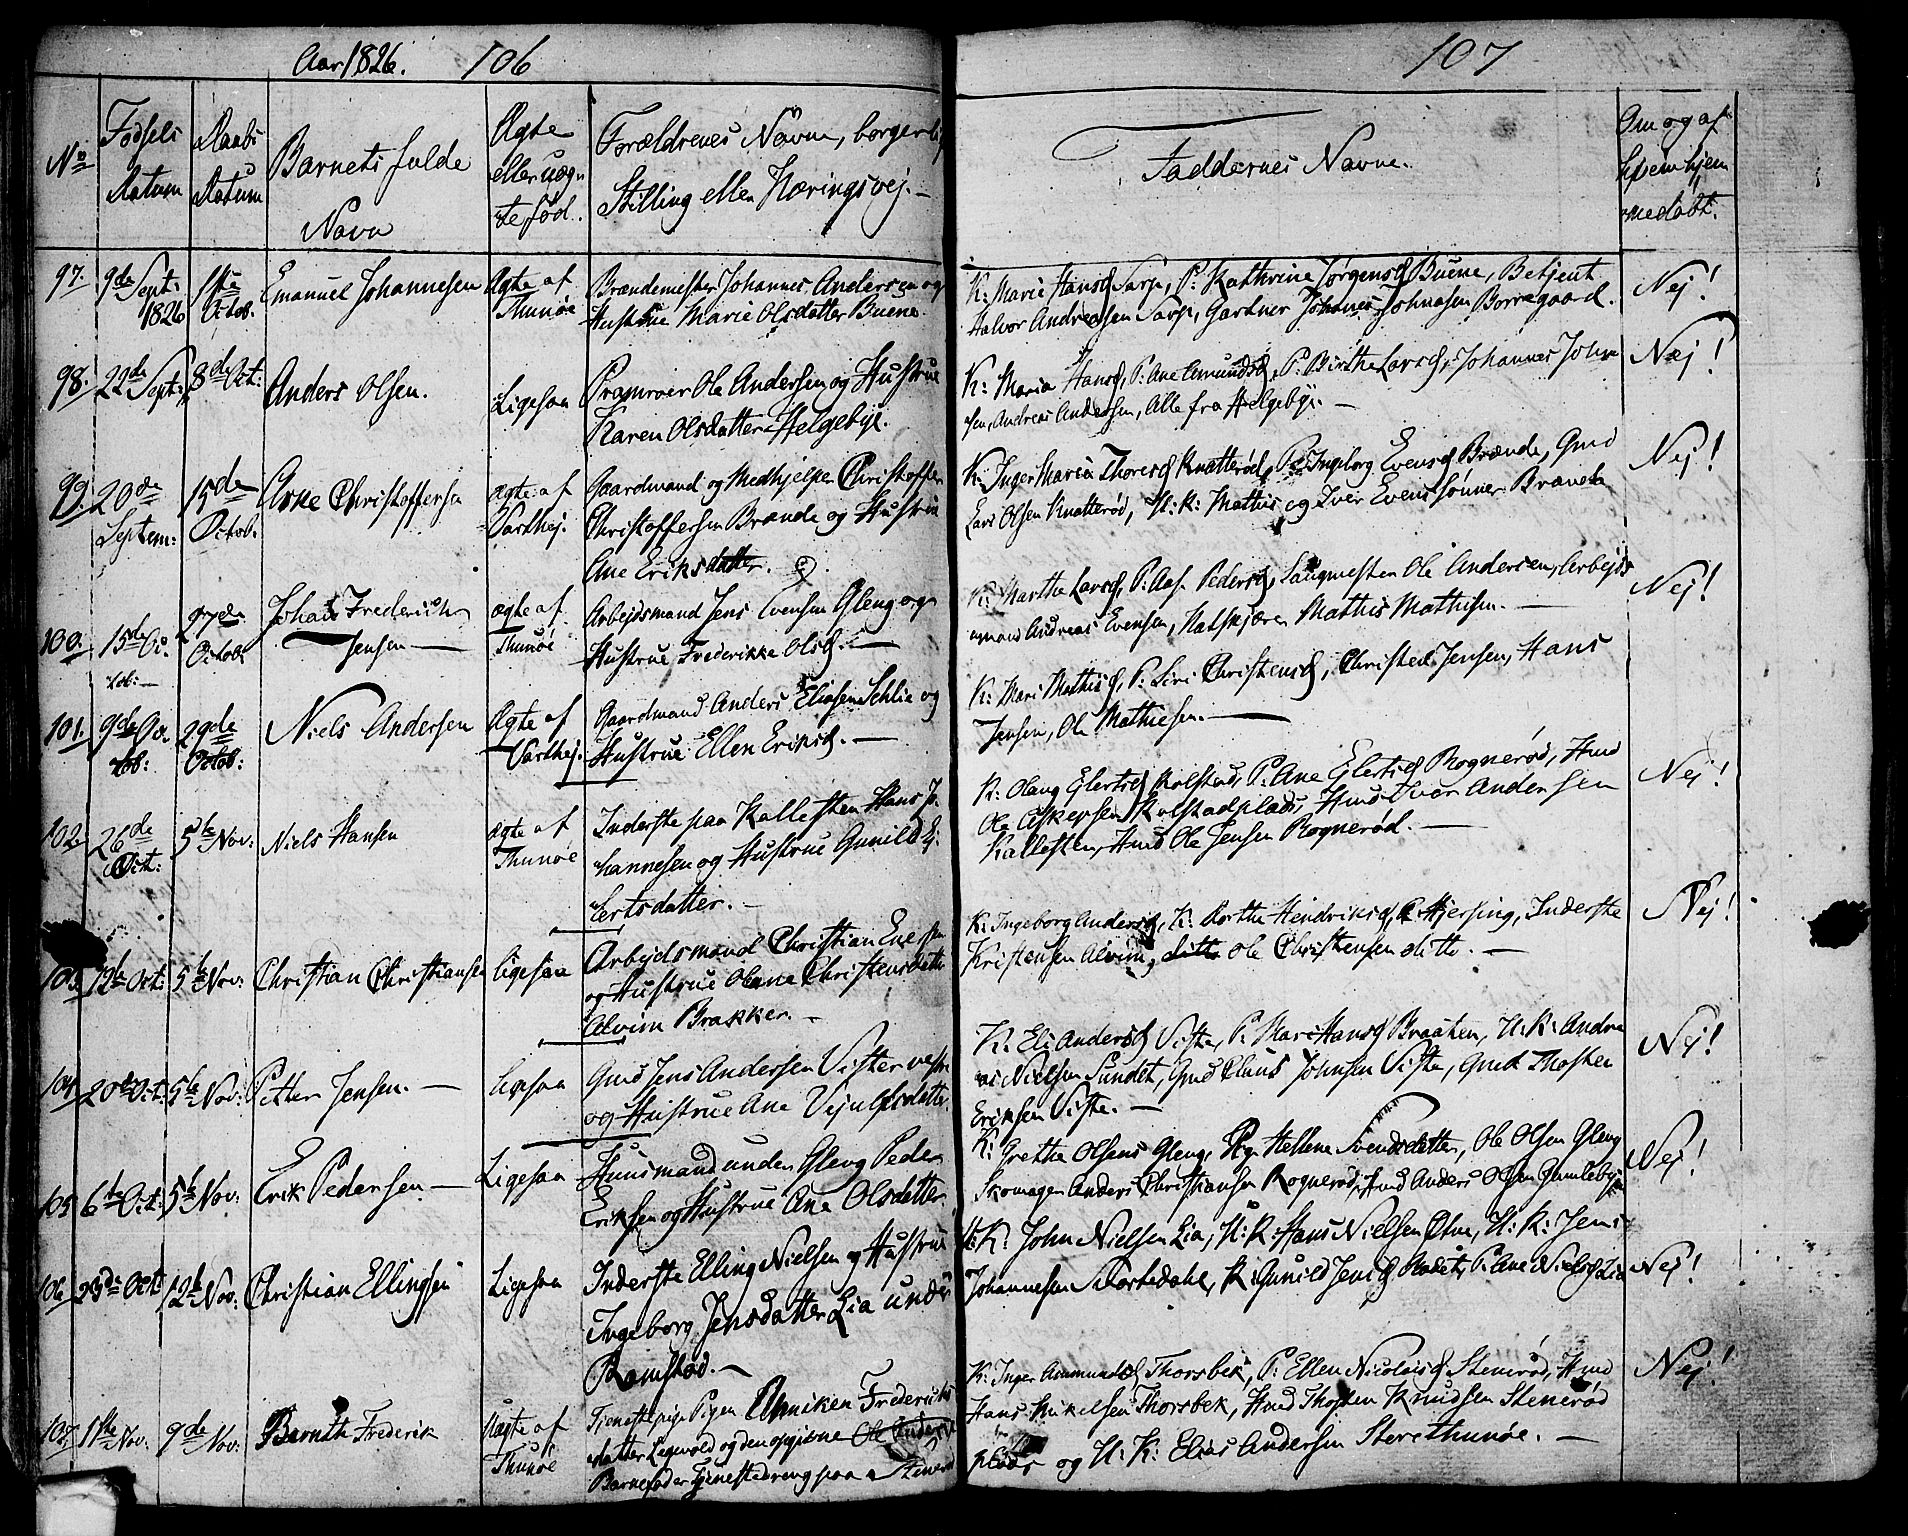 Aar 1826. 106
No
Fødsels Datum
Daabs Datum
Barnets fulde Navn
Ægte eller uægte fød.
Forældrenes Navne, borgerlig
Stilling eller Næringsvej. —
97. 9de Sept: 1826 1ste Octob. Emanuel Johannesen Ægte af Thunøe
Brændemester Johannes Andersen og
Hustrue Marie Olsdatter Buene.
98. 22de Sept: 8de Oct: Anders Olsen. Ligesaa
Pramroer Ole Andersen og Hustrue
Karen Olsdatter Helgebye.
99. 20de Septem: 15de Octob. Arne Christoffersen Ægte af Varthej.
Gaardmand og Medhjelper Christoffer
Christoffersen Brænde og Hustrue
Ane Eriksdatter.
100. 15de Octob:— 27de Octob. Johan Frederich Jensen — ægte af Thunøe
Arbejdsmand Jens Evensen Gleng og
Hustrue Frederikke Olsd. —
101. 9de Octob: 29de Octob: Niels Andersen Ægte af Varthej.
Gaardmand Anders Eliasen Schlie og
Hustrue Ellen Eriksd. —
102. 26de Oct: 5te Nov: Niels Hansen ægte af Thunøe
Inderste paa Kallesten Hans Jo
hannesen og Hustrue Gunild Ej
lertsdatter. —
103. 12te Oct: 5te Nov: Christian Christiansen Ligesaa
Arbejdsmand Christian Evensen
og Hustrue Oleane Christensdatter
Alvim Brakker. —
104. 20de Oct: 5te Nov: Petter Jensen. — Ligesaa
Gmd Jens Andersen Vister vestre
og Hustrue Ane Vejulfsdatter
105. 6te Oct: 5te Nov: Erik Pedersen — Ligesaa
Huusmand under Gleng Peder
Eriksen og Hustrue Ane Olsdatter
106. 23de Oct 12te Nov: Christian Ellingsen Ligesaa
Inderste Elling Nielsen og Hustrue
Ingeborg Jensdatter Lia under
Romstad. —
107. 1ste Nov: 9de Nov: Bernth Frederik Ægte af Thunøe
Tienestepige Pigen Anniken Frederichs
datter Legvold og den opgivne Ole Anders
Barnefader Tienestedreng paa Stener
107
Faddernes Navne.
Om og af hvem hjemmedøbt.
K: Marie Hansd Sarp, P: Kathrine Jørgensd Buene, Betjent
Halvor Andreasen Sarp, Gartner Johanes Johnasen Borregaard. Nej!
K: Maria Hansd, P: Ane Amundsd, P: Birthe Larsd, Johannes John
sen, Andreas Andersen, Alle fra Helgebye. — Nej!
K: Inger Maria Thoresd Knatterød, P: Ingeborg Evensd Brænde, Gmd
Lars Olsen Knatterød, U: K: Mathis og Iver Evens Sønner Brænde Nej!
K: Marthe Larsd, P: Aase Pedersd, Saugmester Ole Andersen, Arbejds
mand Andreas Evensen, Natskjærer Mathis Mathisen. — Nej!
K: Mari Mathisd, P: Siri Christensd, Christen Jensen, Hans
Jensen, Ole Mathiesen. —
K: Olaug Ejlertsd Kolstad, P: Ane Ejlertsd Rognerød, Hmd
Ole Askersen Kolstadplads, Hmd Iver Andersen
Kallesten, Hmd Ole Jensen Rognerød. — Nej!
K: Ingeborg Andersd, K: Dorthe Hendriksd, Hjersing, Inderste
Kristensen Alvim, ditto Ole Christensen ditto. — Nej!
K: Eli Andersd Viste, P: Mari Hansd Braaten, U: K: Andre
as Nielsen Sundet, Gmd Claus Johnsen Viste, Gmd Thosten
Eriksen Viste. — Nej!
K: Grethe Olsens Gleng, Pige Hellene Svendsdatter, Ole Olsen Gleng
Skomager Anders Christiansen Rognerød, Hmd Anders Olsen Gamlebyen Nej!
U: K: John Nielsen Lia, U: K: Hans Nielsen, U: K: Jens
Johannesen Skortedahl, K: Gunild Jensd, P: Ane Nielsd Lia Nej!
K: Inger Ammundsd Thorsbek, P: Ellen Nicolaisd Stenerød, Hmd
Hans Mikelsen Thorsbek, Hmd Thosten Knudsen Stenerød
plads og U: K: Elias Andersen Store Thunøe. — Nej!